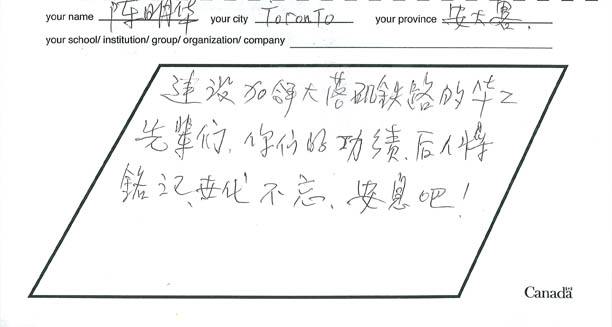 your name 陈明华 your city Toronto your province 安大略.
your school/ institution/ group/ organization/ company
建设加拿大落矶铁路的华工
先辈们、你们的功绩、后人将
铭记、世代不忘、安息吧！
Canada